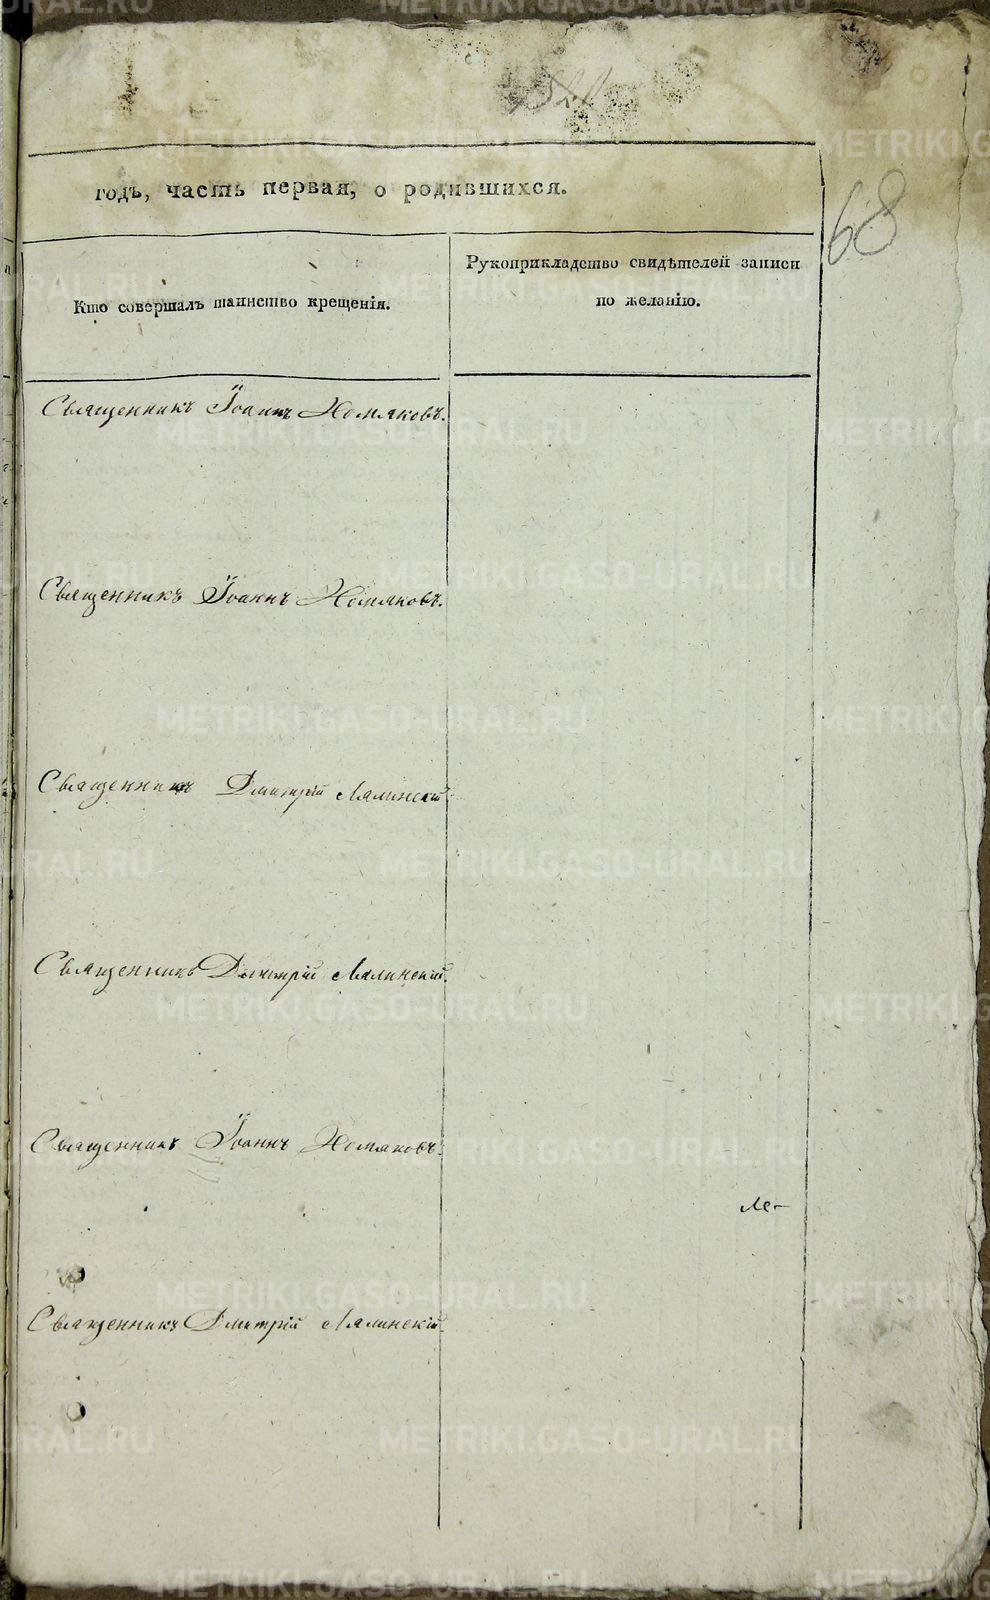 68
годъ, часть первая, о родившихся.
Кто совершалъ таинство крещенія.
Рукоприкладство свидѣтелей записи
по желанію.
Священникъ Іоаннъ Хомяковъ.
Священникъ Іоаннъ Хомяковъ.
Священникъ Дмитрій Лялинскій.
Священникъ Дмитрій Лялинскій.
Священникъ Іоаннъ Хомяковъ.
Священникъ Дмитрій Лялинскій.
METRIKI.GASO-URAL.RU